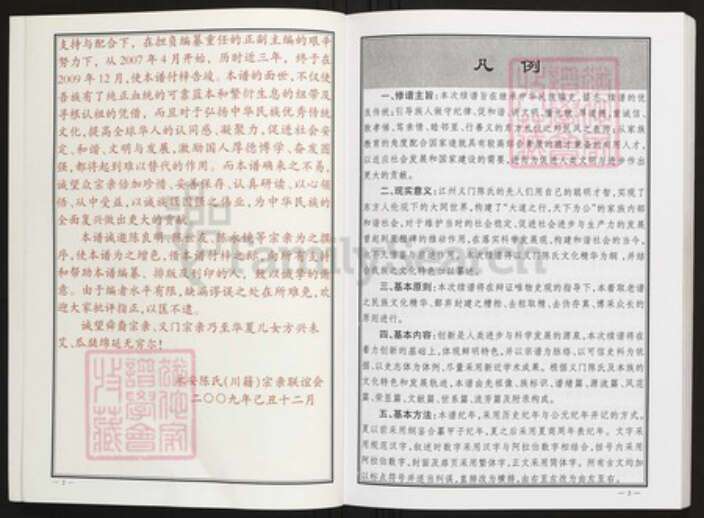 支持与配合下，在担负编纂重任的正副主编的艰辛
努力下，从2007年4月开始，历时近三年，终于在
2009年12月，使本谱付梓告竣。本谱的面世，不仅使
吾族有了纯正血统的可靠蓝本和繁衍生息的纽带及
寻根认祖的凭借，而且对于弘扬中华民族优秀传统
文化，提高全球华人的认同感、凝聚力，促进社会安
定、和谐、文明与发展，激励国人厚德博学、奋发图
强，都将起到难以替代的作用。而本谱确来之不易，
诚望众宗亲倍加珍惜，妥善保存，认真研读，以心领
悟，从中受益，以诚族
全面复兴做出更大的贡献。
本谱诚邀陈良
序，使本谱为之增色，借本谱付梓之际，向所有支持
和帮助本谱编纂、排版及刊印的人，致以深厚的谢
意。由于编者水平有限，缺漏谬误之处在所难免，欢
迎大家批评指正，以匡不逮。
诚望舜裔宗亲、义门宗亲乃至华夏儿女方兴未
艾、瓜瓞绵延无穷尔！
陈氏(川籍)宗亲联谊会
二〇〇九年己丑十二月
— 2 —
凡 例
一、修谱主旨：本次续谱旨在继承中华民族编史、
良传统；引导族人做守纪律、促和谐、
教孝悌、笃亲情、睦邻里、行善义的
教育的角度配合国家造就具有较高
以适应社会发展和国家建设的需要，
更大的贡献。
二、现实意义：江州义门陈氏的先人们用自己的聪明才智，实现了
东方人伦视下的大同世界，构建了“大道之行，天下为公”的家族内部
和谐社会，对于维护当时的社会稳定、促进社会进步与生产力的发展
曾起到里程碑的推动作用。在落实科学发展观，构建和谐社会的当今，
陈氏文化精华为纲，并结
合我族之文化特色加以纂述。
三、基本原则：本次续谱将在辩证唯物史观的指导下，本着取老谱
之民族文化精华、鄙弃封建之糟粕，去粗取精、去伪存真、博采众长的
原则进行。
四、基本内容：创新是人类进步与科学发展的源泉，本次续谱将在
着力创新的基础上，体现鲜明特色，并以宗谱为脉络，以可信史料为依
据，以史志体为体例，尽量采用新近学术成果。根据义门陈氏及本族的
文化特色和发展轨迹，本谱由先祖像、族标识、谱绪篇、源流篇、风范
篇、荣显篇、文献篇、世系篇、流芳篇及附录构成。
五、基本方法：本谱纪年，采用历史纪年与公元纪年并记的方式。
夏以前采用纲鉴合纂甲子纪年，夏之后采用夏商周年表纪年。文字采
用规范汉字，叙述时数字采用汉字与阿拉伯数字相结合，括号内采用
阿拉伯数字，封面及扉页采用繁体字，正文采用简体字。所有古文均加
以标点符号并适当纠误，直排改为横排，由右至左改为由左至右。
— 3 —
FamilySearch